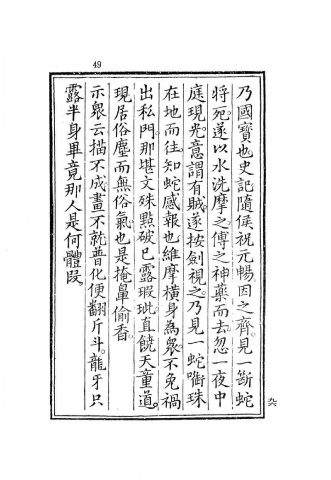 49
乃國寶也史記隨侯祝元暢因之齊見一斷蛇
將死遂以水洗摩之傅之神藥而去忽一夜中
庭現光意謂有賊遂按劍視之乃見一蛇啣珠
在地而往知蛇感報也維摩橫身為眾不免禍
出私門那堪文殊點破已露瑕玼直饒天童道
現居俗塵而無俗氣也是掩鼻偷香
示眾云描不成畫不就普化便翻斤斗龍牙只
露半身畢竟那人是何體段